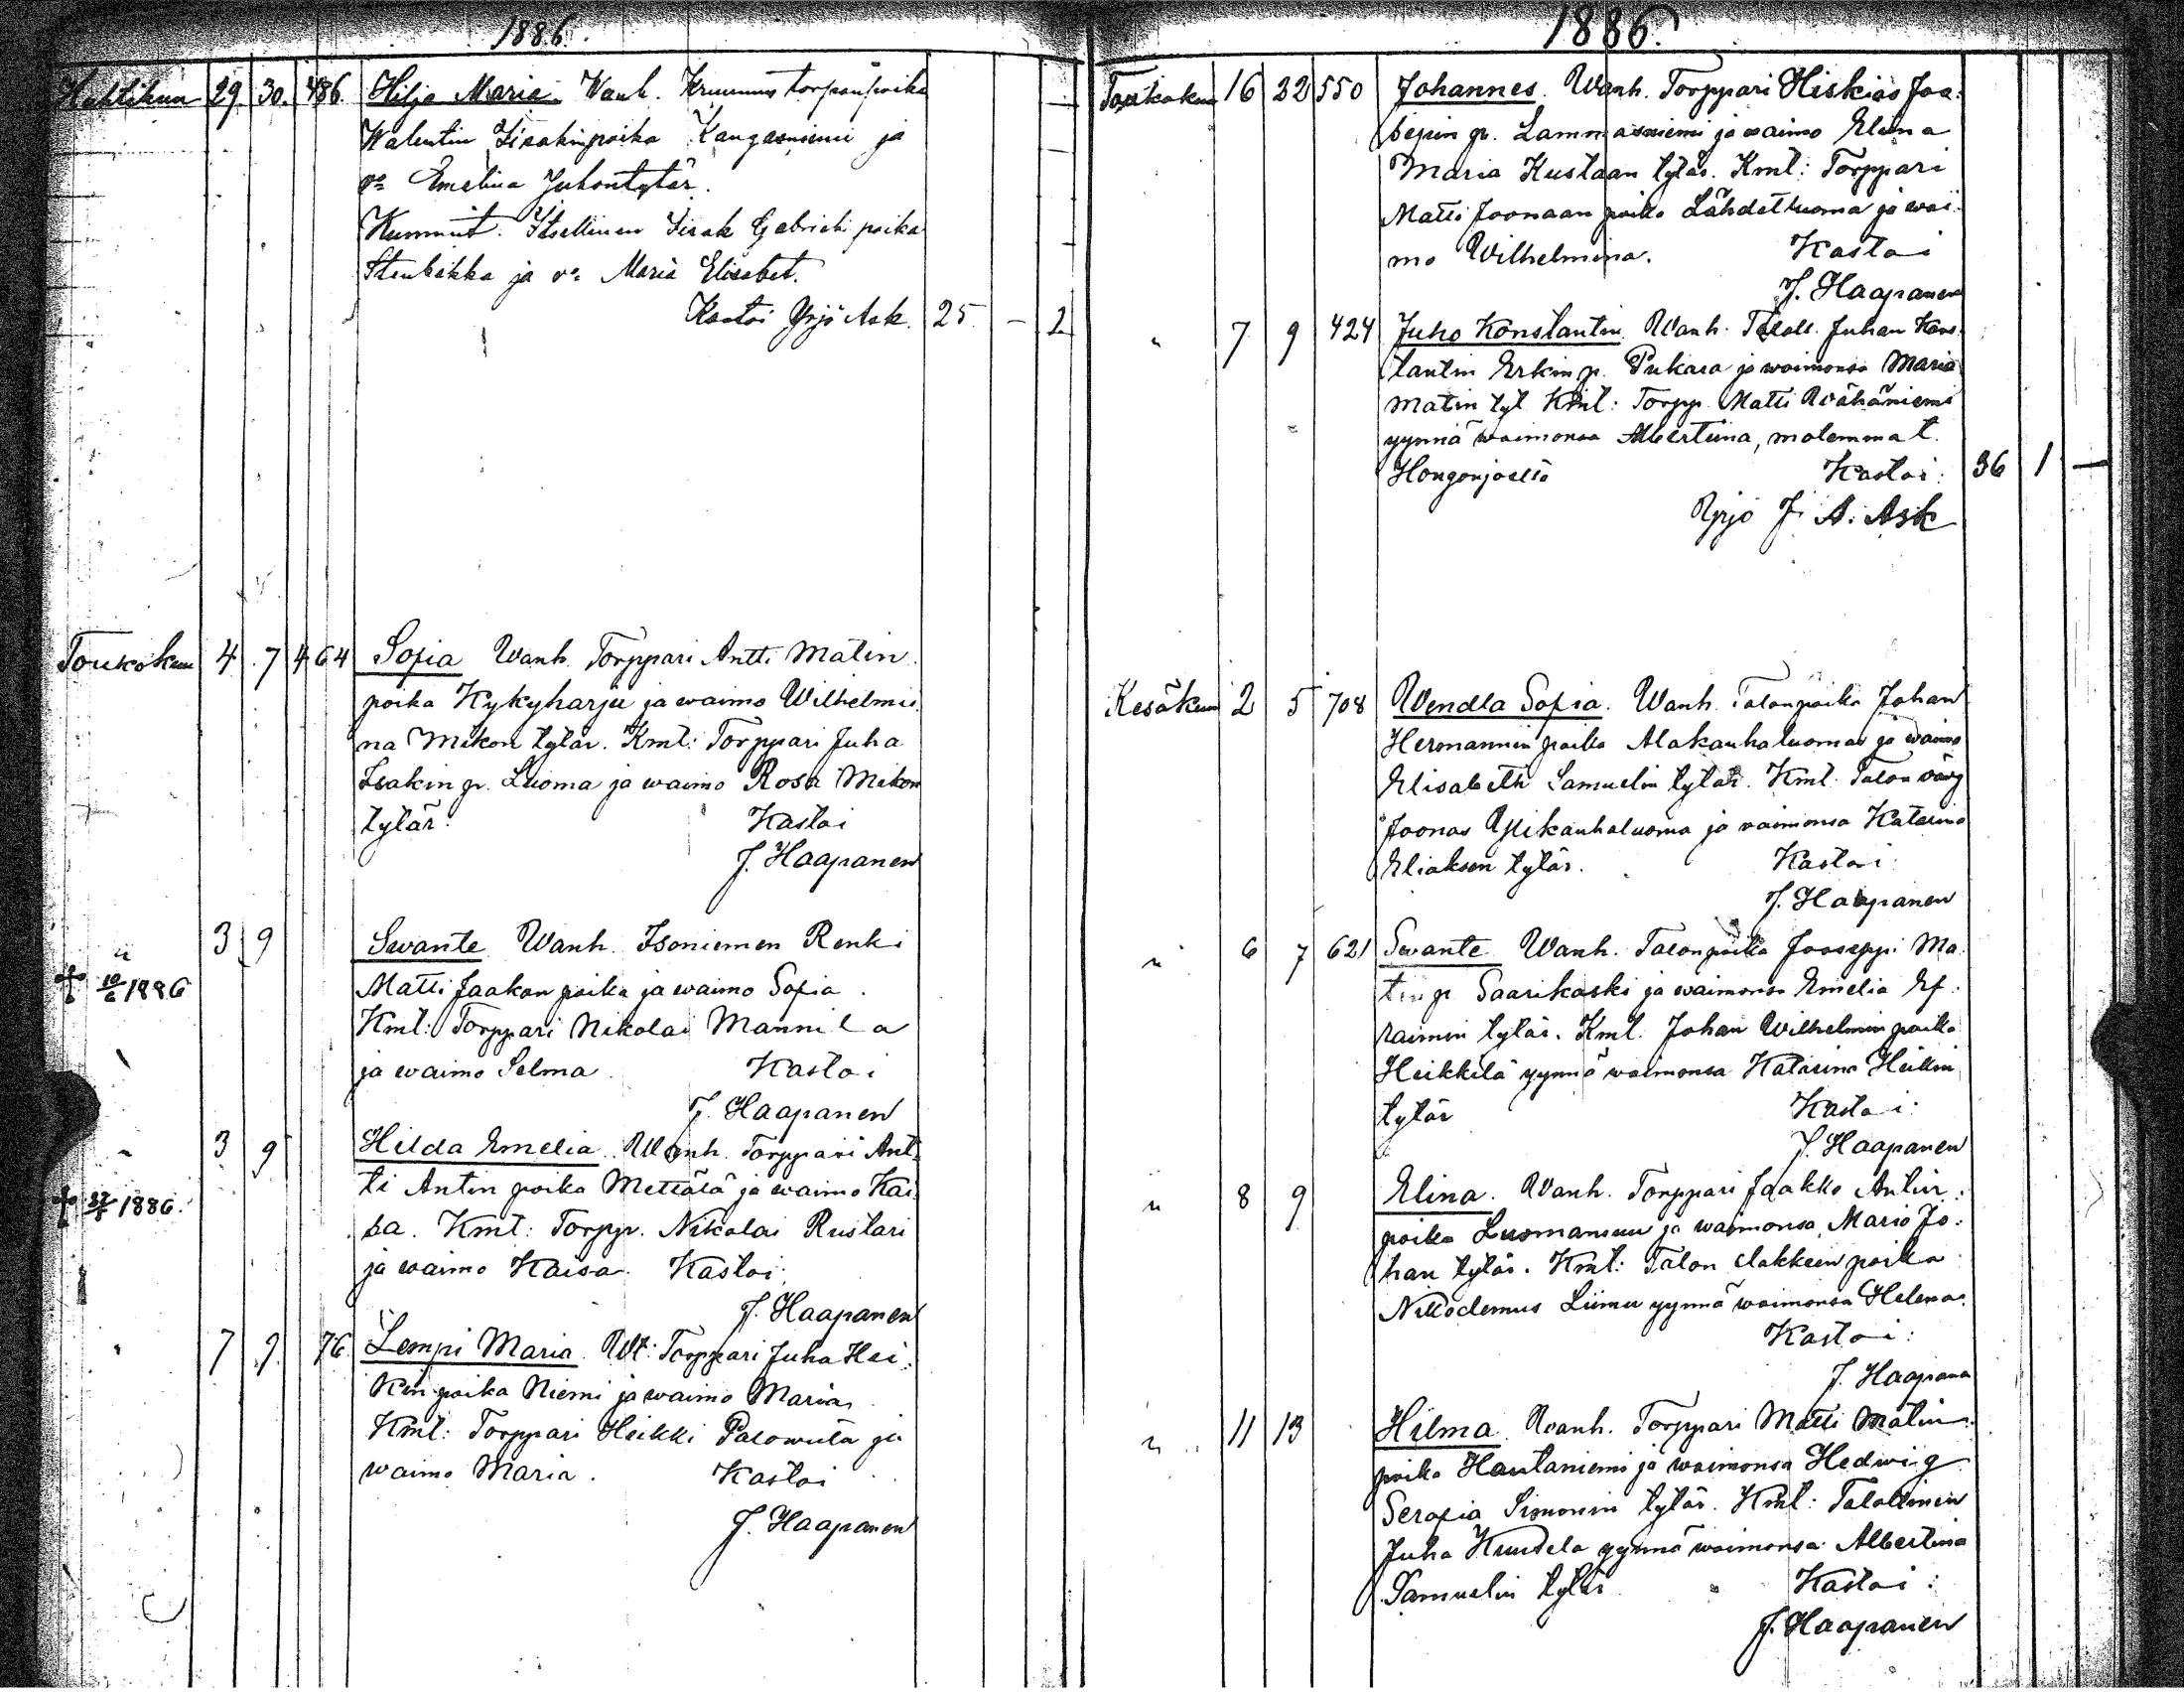 1886.
Huhtikuu 29 30. 486. Hilja Maria. Wanh. Kruunun torpanpoika
Walentin Iisakinpoika Kangasniemi ja
v:o Emelina Juhontytär.
Kummit. Itsellinen Iisak Gabrielinpoika
Stenbakka ja v:o Maria Elisabet.
Kastoi Yrjö Ask. 25 – 2
Toukokuu 4 7 464 Sofia Wanh. Torppari Antti Matin
poika Kykyharju ja waimo Wilhelmii
na Mikon tytär. Kmt: Torppari Juha
Isakin p. Luoma ja waimo Rosa Mikon
tytär. Kastoi
J. Haapanen
" 3 9 Swante Wanh. Isoniemen Renki
† 10/6 1886 Matti Jaakon poika ja waimo Sofia.
Kmt: Torppari Nikolai Mannila
ja waimo Selma. Kastoi
J. Haapanen
" 3 9 Hilda Emelia. Wanh. Torppari Ant-
† 1886. ti Antin poika Metsälä ja waimo Kai-
sa. Kmt: Torpp. Nikolai Rustari
ja waimo Kaisa. Kastoi:
J. Haapanen
" 7 9. 76. Lempi Maria. Wt: Torppari Juha Hei-
kin poika Niemi ja waimo Maria.
Kmt: Torppari Heikki ja
waimo Maria. Kastoi
J. Haapanen
1886.
Toukokuu 16 22 550 Johannes. Wanh. Torppari Hiskias Joo-
sepin p. Lammasniemi ja waimo Elina
Maria Kustaan tytär. Kmt: Torppari
Matti Joonaan poika Lähdetluoma ja wai-
mo Wilhelmina. Kastoi
J. Haapanen
" 7 9 424 Juho Konstantin. Wanh. Taloll. Juhan Kons-
tantin Erkin p. Pukara ja waimonsa Maria
Matin tyt. Kmt: Torpp. Matti Wähäniemi
yynnä waimonsa Albertiina, molemmat
Hongonjoelta Kastoi: 36 1 –
Yrjö J. A. Ask
Kesäkuu 2 5 708 Wendla Sofia. Wanh. Talonpoika Johan
Hermannin poika Alakauhaluoma ja waimo
Elisabeth Samuelin tytär. Kmt: Talon vävy
Joonas Ylikauhaluoma ja vaimonsa Katarina
Eliaksen tytär. Kastoi:
J. Haapanen
" 6 7 621 Swante Wanh. Talonpoika Jooseppi Ma-
tin p. Saarikoski ja waimonsa Emelia Ef-
raimin tytär. Kmt. Johan Wilhelmin poika
Heikkilä yynnä waimonsa Katarina Heikin
tytär Kastoi:
J. Haapanen
" 8 9 Elina. Wanh. Torppari Jaakko Antin
poika Luomansuu ja waimonsa Maria Jo-
han tytär. Kmt: Talon poika
Nikodemus Liimu yynnä waimonsa Helena.
Kastoi:
J. Haapanen
" 11 13 Hilma. Wanh. Torppari Matti Matin
poika Hautaniemi ja waimonsa Hedwig
Serafia Simonin tytär. Kmt: Talollinen
Juha Knuutela yynnä waimonsa Albertina
Samuelin tytär Kastoi:
J. Haapanen